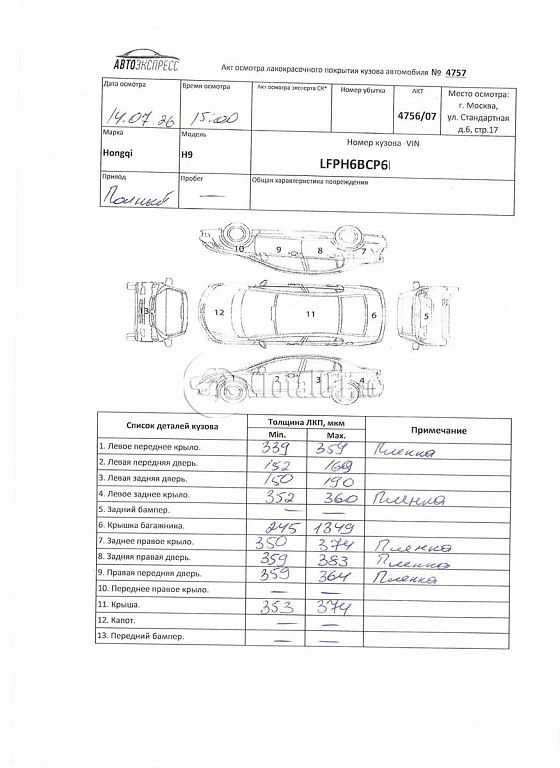 АВТОЭКСПРЕСС
Акт осмотра лакокрасочного покрытия кузова автомобиля № 4757
Дата осмотра
14.07.26
Время осмотра
15:00
Акт осмотра эксперта СК*
Номер убытка
АКТ
4756/07
Место осмотра:
г. Москва,
ул. Стандартная
д.6, стр.17
Марка
Hongqi
Модель
H9
Номер кузова -VIN
LFPH6BCP6
Привод
Полный
Пробег
—
Общая характеристика повреждений
10 9 8 7
13 12 11 6 5
2 3 4
Список деталей кузова Толщина ЛКП, мкм Примечание
Min. Max.
1. Левое переднее крыло. 339 359 Пленка
2. Левая передняя дверь. 152 169
3. Левая задняя дверь. 150 190
4. Левое заднее крыло. 352 360 Пленка
5. Задний бампер. — —
6. Крышка багажника. 245 1349
7. Заднее правое крыло. 350 374 Пленка
8. Задняя правая дверь. 359 383 Пленка
9. Правая передняя дверь. 359 364 Пленка
10. Переднее правое крыло. — —
11. Крыша. 353 374
12. Капот. — —
13. Передний бампер. — —